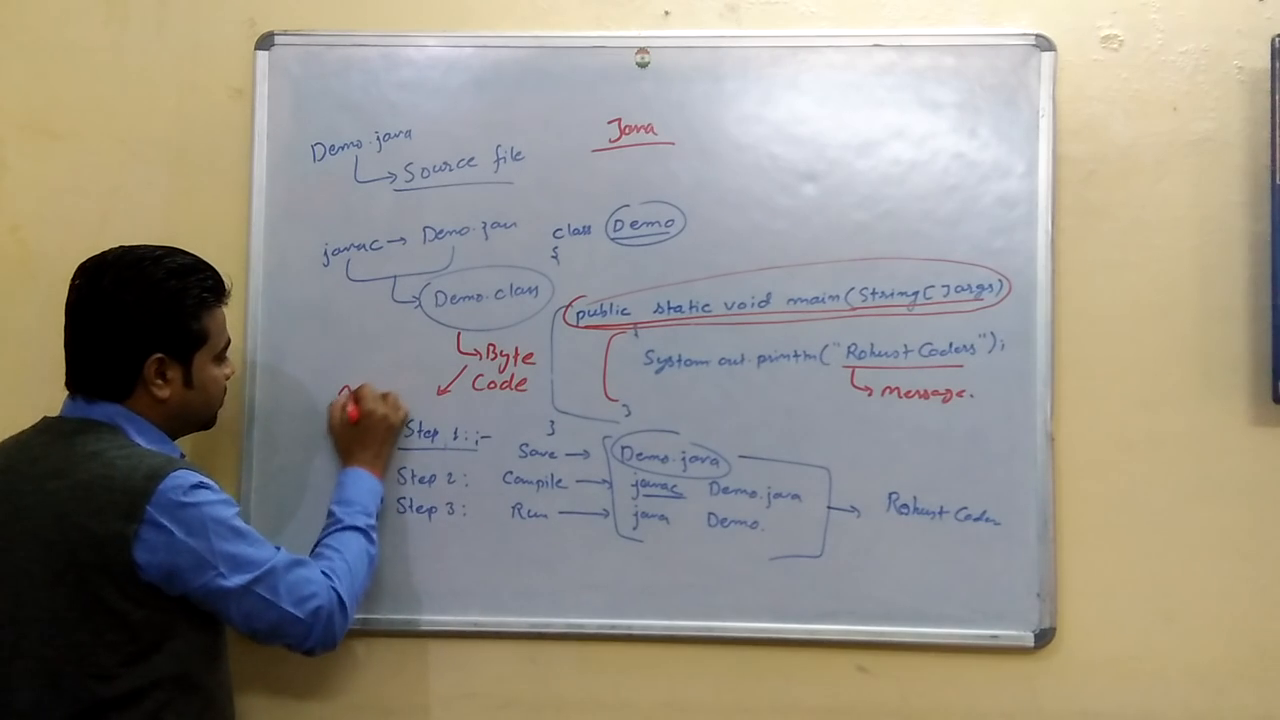 Java
Demo.java
Source file
javac → Demo.java
Demo.class
Byte
Code
class Demo
{
public static void main(String[] args)
{
System.out.println("Robust Coders");
message.
}
}
Step 1:-
Save → Demo.java
Step 2: Compile → javac Demo.java
Step 3: Run → java Demo.
→ Robust Coder